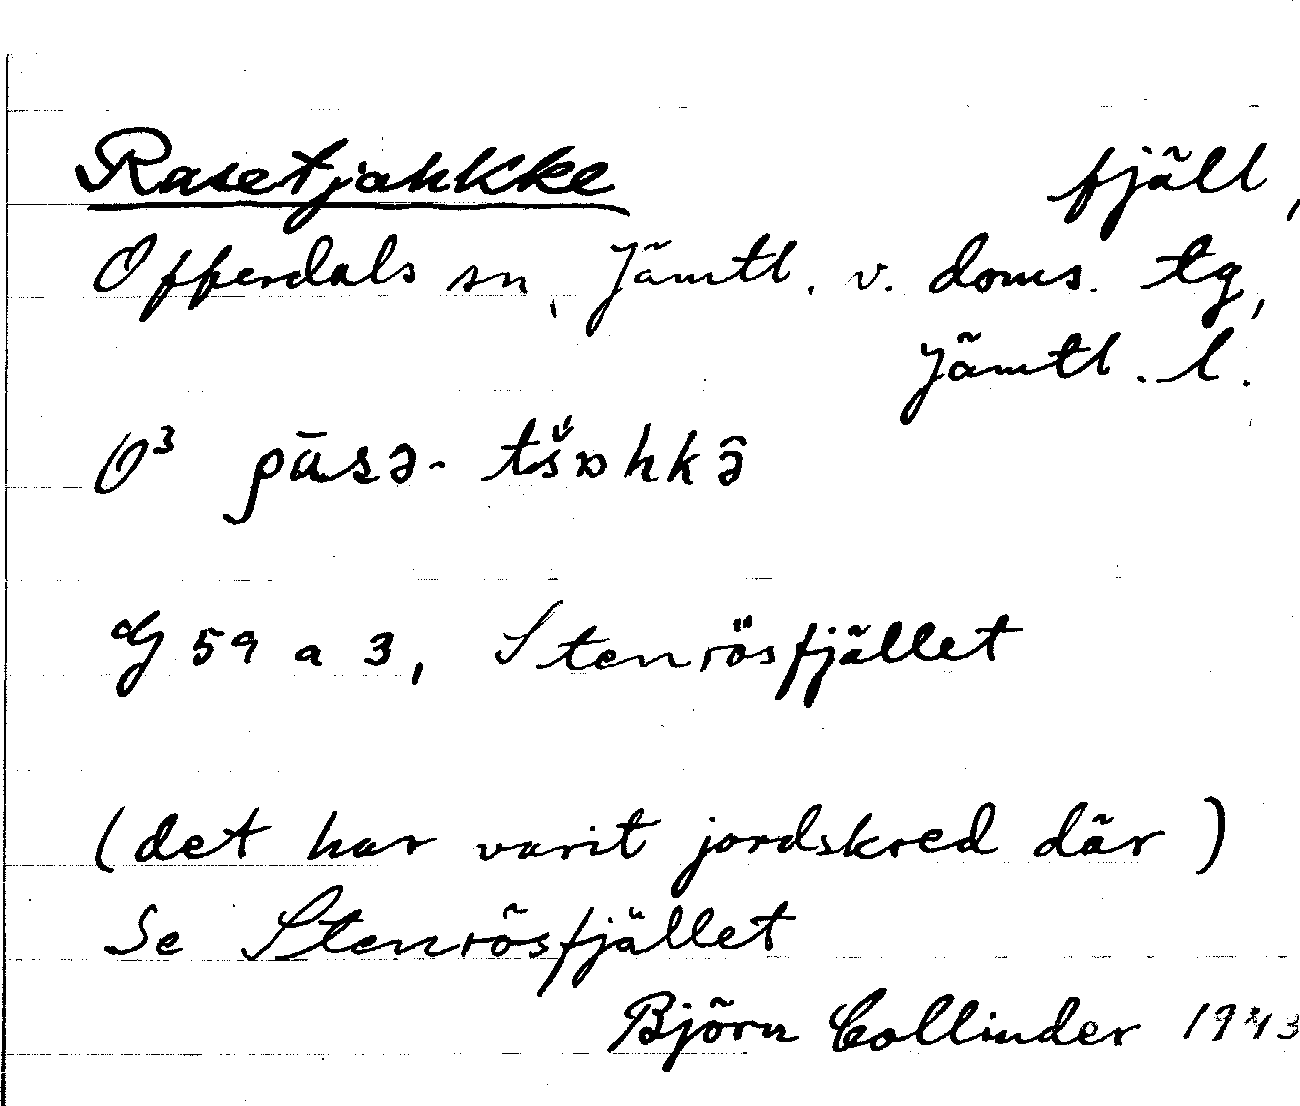 Rasetjahkke fjäll,
Offerdals sn, Jämtl. v. doms. tg,
Jämtl. l.
O³ ρāsə- tš́ɒhkə̑
G 59 a 3, Stenrösfjället
(det har varit jordskred där)
Se Stenrösfjället
Björn Collinder 1943